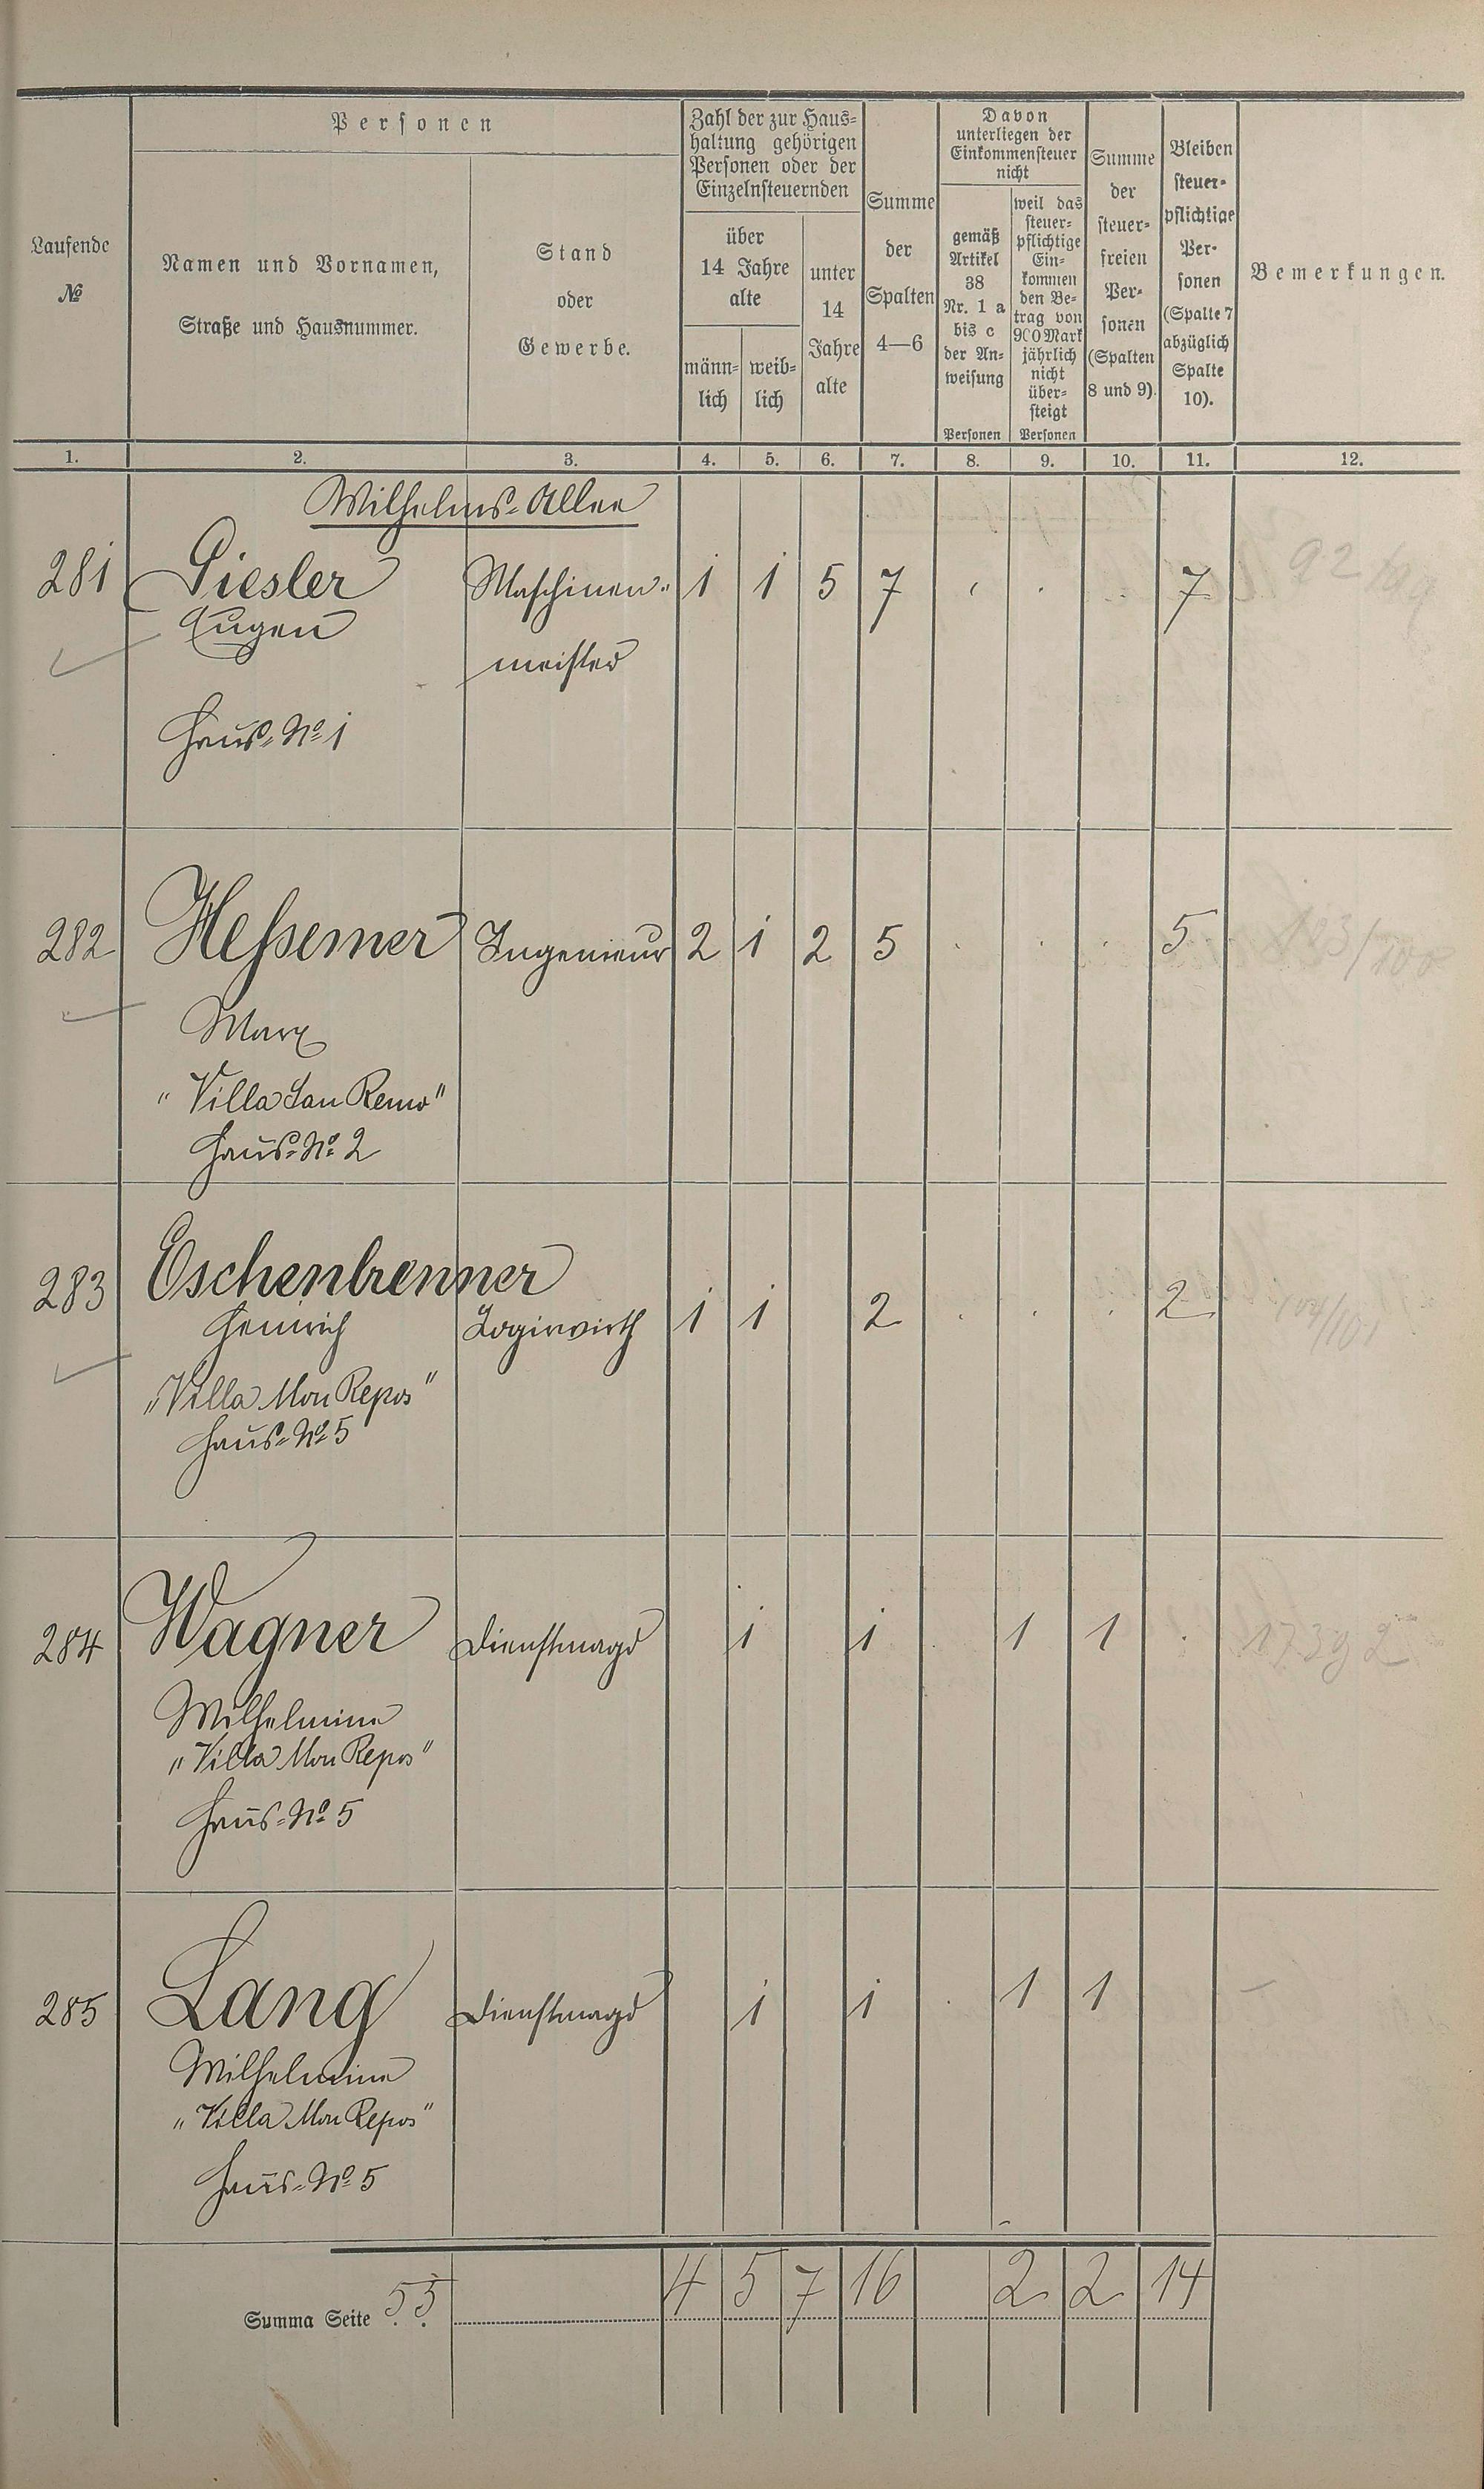 Personen
Zahl der zur Haus-
haltung gehörigen
Personen oder der
Einzelnsteuernden
Davon
unterliegen der
Einkommensteuer
nicht
Laufende
№
Namen und Vornamen,
Straße und Hausnummer.
Stand
oder
Gewerbe.
über
14 Jahre
alte
männ-
lich
weib-
lich
unter
14
Jahre
alte
Summe
der
Spalten
4—6
gemäß
Artikel
38
Nr. 1 a
bis c
der An-
weisung
Personen
weil das
steuer-
pflichtige
Ein-
kommen
den Be-
trag von
900 Mark
jährlich
nicht
über-
steigt
Personen
Summe
der
steuer-
freien
Per-
sonen
(Spalten
8 und 9).
Bleiben
steuer-
pflichtige
Per-
sonen
(Spalte 7
abzüglich
Spalte
10).
Bemerkungen.
1. 2. 3. 4. 5. 6. 7. 8. 9. 10. 11. 12.
Wilhelms-Allee
281 Giesler Maschinen- 1 1 5 7 7
Eugen meister
Haus-№ 1
282 Hessemer Ingenieur 2 1 2 5 5
Marx
"Villa San Remo"
Haus-№ 2
283 Eschenbrenner
Heinrich Logirwirth 1 1 2 2
"Villa Mon Repos"
Haus-№ 5
284 Wagner Dienstmagd 1 1 1 1
Wilhelmine
"Villa Mon Repos"
Haus-№ 5
285 Lang Dienstmagd 1 1 1 1
Wilhelmine
"Villa Mon Repos"
Haus-№ 5
Summa Seite 55 4 5 7 16 2 2 14